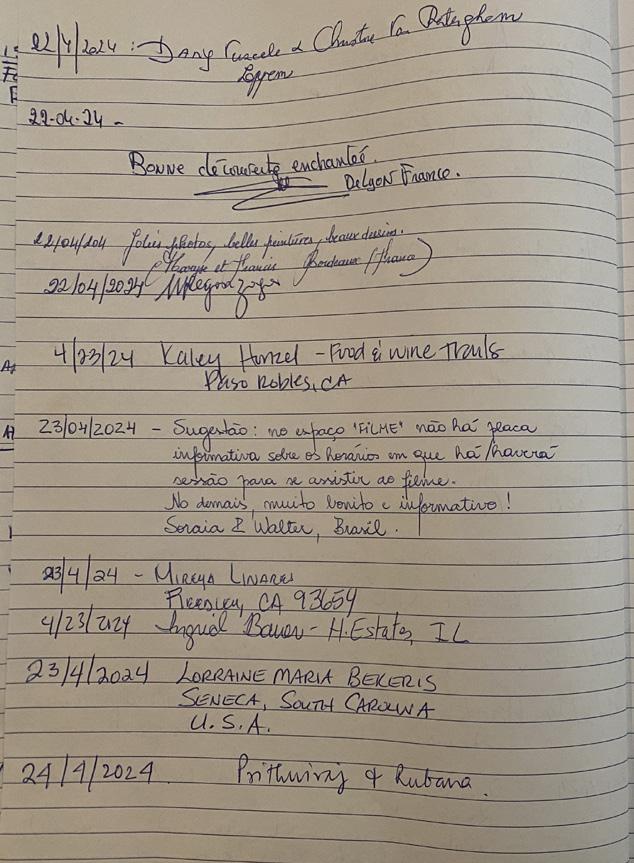 22/4/2024 : Dany & Christine Van
Loppem
22-04-24 -
Bonne découverte enchanteé.
DeLyon France.
22/04/204 Jolies photos, belles peintures, beaux dessins.
et Francis Bordeaux (France)
22/04/2024
4/23/24 Kaley Hunzel - Food & Wine Trails
Paso Robles, CA
23/04/2024 - Sugestão: no espaço "FILME" não há placa
informativa sobre os horários em que há/haverá
sessão para se assistir ao filme.
No demais, muito bonito e informativo!
Soraia & Walter, Brasil.
23/4/24 - Mireya Linares
Reedley, CA 93654
4/23/2124 Ingrid Bauer - H. Estates, IL
23/4/2024 LORRAINE MARIA BEKERIS
SENECA, SOUTH CAROLINA
U.S.A.
24/4/2024 Prithviraj & Rubana.